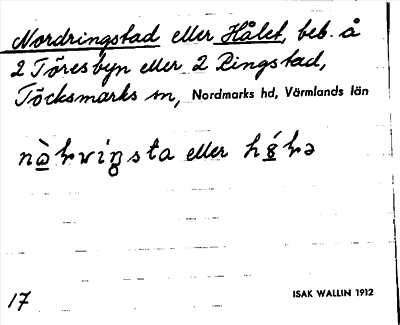 Nordringstad eller Hålet, beb. å
2 Töresbyn eller 2 Ringstad,
Töcksmarks sn, Nordmarks hd, Värmlands län
eller
17
ISAK WALLIN 1912